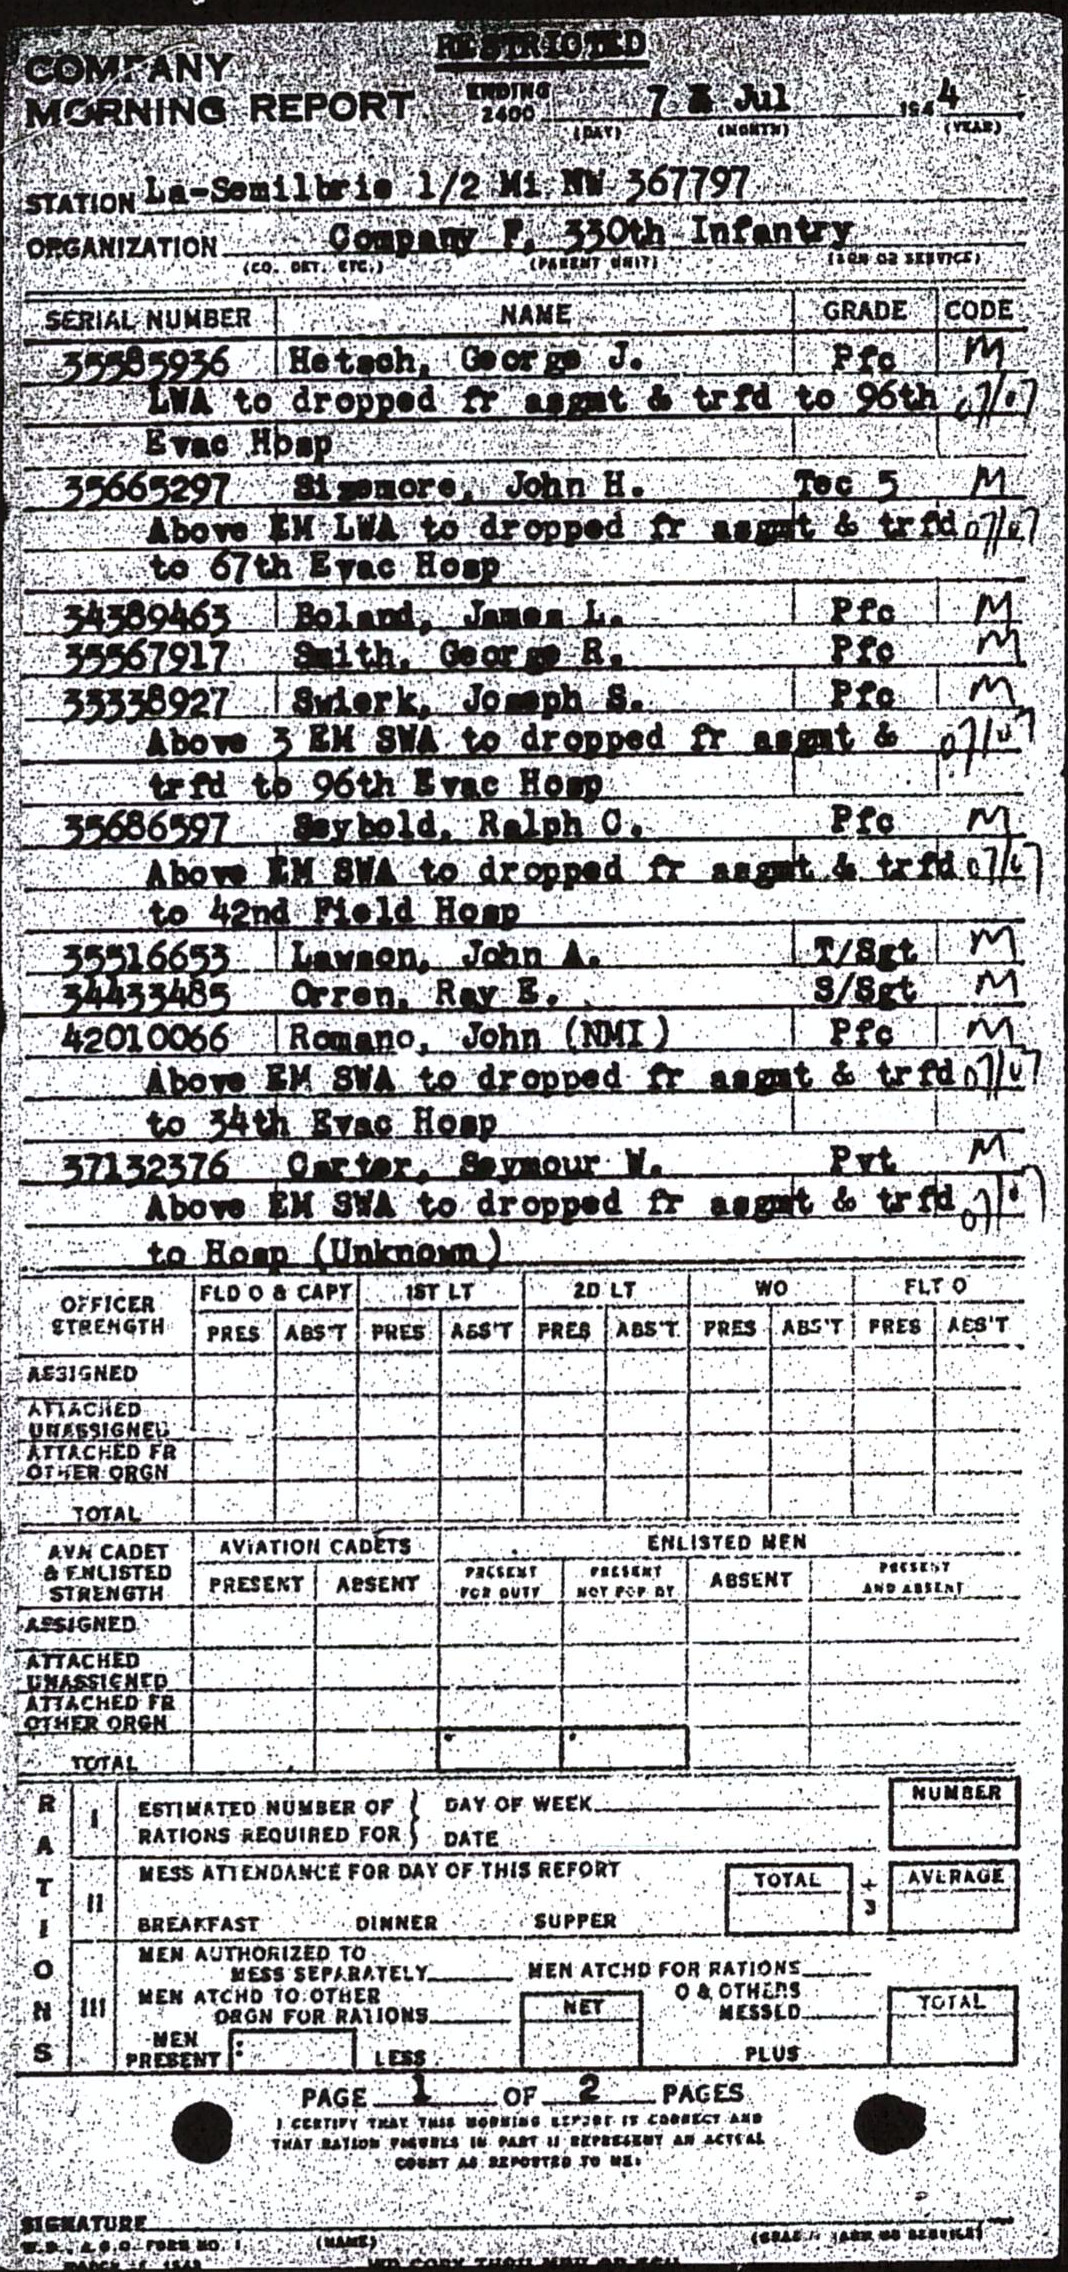 RESTRICTED
COMPANY
MORNING REPORT ENDING 2400 7 Jul 1944
(DAY) (MONTH) (YEAR)
STATION La-Semilbrie 1/2 Mi NW 367797
ORGANIZATION Company F, 330th Infantry
(CO. DET. ETC.) (PARENT UNIT) (ARM OR SERVICE)
SERIAL NUMBER NAME GRADE CODE
35585936 Hetsch, George J. Pfc M
LWA to dropped fr asgmt & trfd to 96th 07/07
Evac Hosp
35665297 Sizemore, John H. Tec 5 M
Above EM LWA to dropped fr asgmt & trfd 07/07
to 67th Evac Hosp
34389463 Boland, James L. Pfc M
35567917 Smith, George R. Pfc M
33338927 Swierk, Joseph S. Pfc M
Above 3 EM SWA to dropped fr asgmt & 07/07
trfd to 96th Evac Hosp
35686597 Seybold, Ralph C. Pfc M
Above EM SWA to dropped fr asgmt & trfd 07/07
to 42nd Field Hosp
35516653 Lawson, John A. T/Sgt M
34433485 Orren, Ray E. S/Sgt M
42010066 Romano, John (NMI) Pfc M
Above EM SWA to dropped fr asgmt & trfd 07/07
to 34th Evac Hosp
37132376 Carter, Seymour W. Pvt M
Above EM SWA to dropped fr asgmt & trfd 07/07
to Hosp (Unknown)
OFFICER STRENGTH FLD O & CAPT 1ST LT 2D LT WO FLT O
PRES ABS'T PRES ABS'T PRES ABS'T PRES ABS'T PRES ABS'T
ASSIGNED
ATTACHED UNASSIGNED
ATTACHED FR OTHER ORGN
TOTAL
AVN CADET & ENLISTED STRENGTH AVIATION CADETS ENLISTED MEN
PRESENT ABSENT PRESENT FOR DUTY PRESENT NOT FOR DY ABSENT PRESENT AND ABSENT
ASSIGNED
ATTACHED UNASSIGNED
ATTACHED FR OTHER ORGN
TOTAL
RATIONS
I ESTIMATED NUMBER OF RATIONS REQUIRED FOR DAY OF WEEK NUMBER
DATE
II MESS ATTENDANCE FOR DAY OF THIS REPORT TOTAL ÷ 3 AVERAGE
BREAKFAST DINNER SUPPER
III MEN AUTHORIZED TO MESS SEPARATELY MEN ATCHD FOR RATIONS
MEN ATCHD TO OTHER ORGN FOR RATIONS NET O & OTHERS MESSED TOTAL
MEN PRESENT LESS PLUS
PAGE 1 OF 2 PAGES
I CERTIFY THAT THIS MORNING REPORT IS CORRECT AND
THAT RATION FIGURES IN PART II REPRESENT AN ACTUAL
COUNT AS REPORTED TO ME.
SIGNATURE
(NAME) (GRADE) (ARM OR SERVICE)
W.D., A.G.O. FORM NO. 1
MARCH